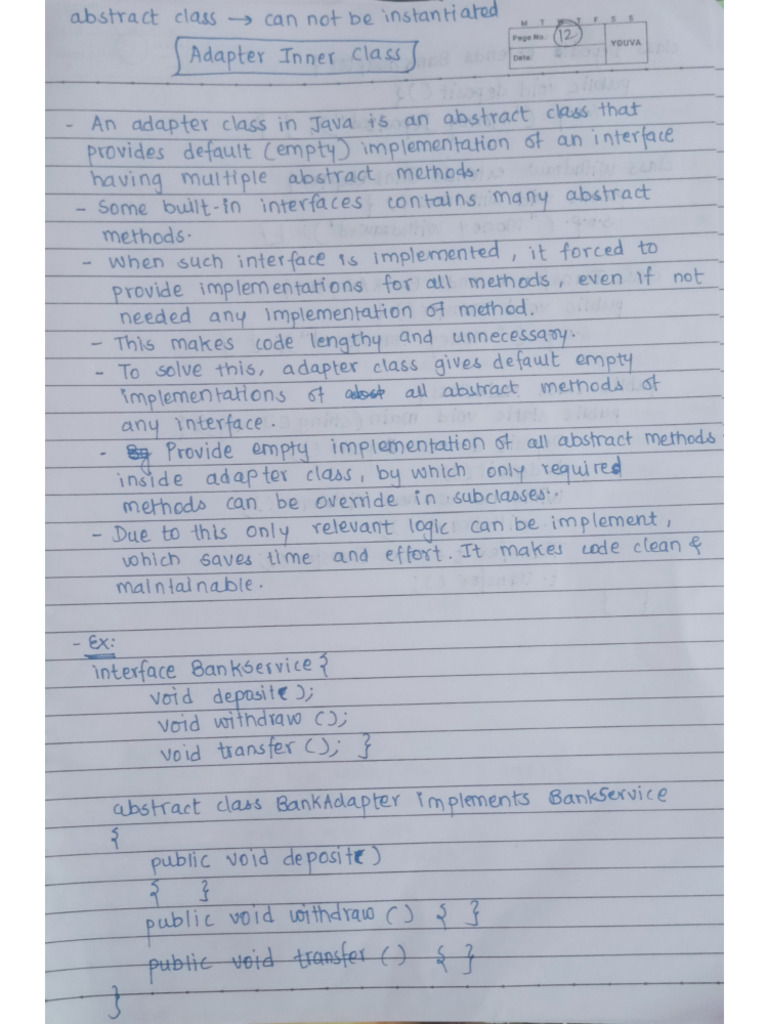 abstract class → can not be instantiated
M T W T F S S
Page No. 12
Date
YOUVA
Adapter Inner Class
- An adapter class in Java is an abstract class that
provides default (empty) implementation of an interface
having multiple abstract methods.
- Some built-in interfaces contains many abstract
methods.
- When such interface is implemented, it forced to
provide implementations for all methods, even if not
needed any implementation of method.
- This makes code lengthy and unnecessary.
- To solve this, adapter class gives default empty
implementations of all abstract methods of
any interface.
- Provide empty implementation of all abstract methods
inside adapter class, by which only required
methods can be override in subclasses.
- Due to this only relevant logic can be implement,
which saves time and effort. It makes code clean &
maintainable.
- Ex:
interface BankService {
void deposit();
void withdraw ();
void transfer (); }
abstract class BankAdapter implements BankService
{
public void deposit()
{ }
public void withdraw () { }
public void transfer () { }
}